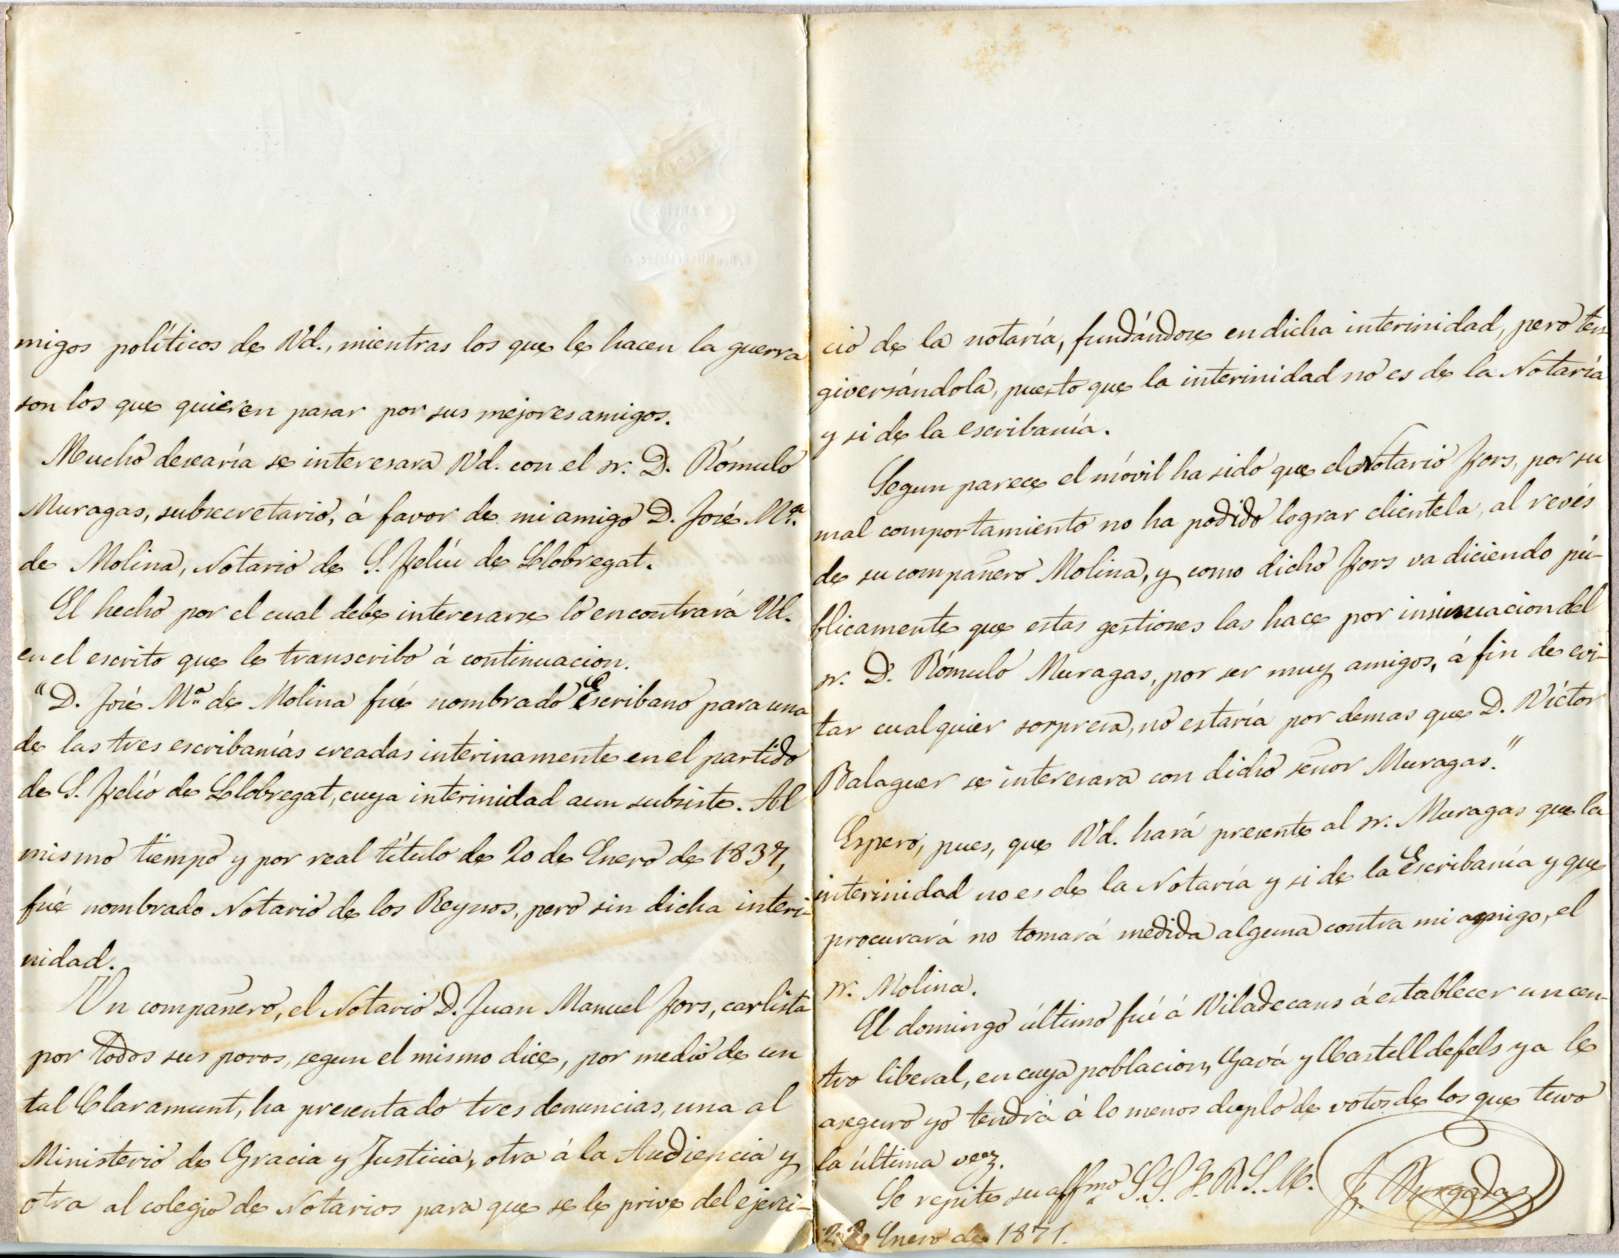 migos políticos de Vd., mientras los que le hacen la guerra
son los que quieren pasar por sus mejores amigos.
Mucho desearía se interesara Vd. con el sr. D. Rómulo
Muragas, subsecretario, á favor de mi amigo D. José Mª.
de Molina, Notario de S. Felíu de Llobregat.
El hecho por el cual debe interesarse lo encontrará Vd.
en el escrito que le transcribo á continuacion.
"D. José Mª de Molina fué nombrado Escribano para una
de las tres escribanías creadas interinamente en el partido
de S. Felió de Llobregat, cuya interinidad aun subsiste. Al
mismo tiempo y por real título de 20 de Enero de 1837,
fué nombrado Notario de los Reynos, pero sin dicha interi-
nidad.
Un compañero, el Notario D. Juan Manuel Fors, carlista
por todos sus poros, segun el mismo dice, por medio de un
tal Claramunt, ha presentado tres denuncias, una al
Ministerio de Gracia y Justicia, otra á la Audiencia y
otra al colegio de Notarios para que se le prive del ejerci-
cio de la notaría, fundándose en dicha interinidad, pero ter
giversándola, puesto que la interinidad no es de la Notaría
y si de la escribanía.
Segun parece el móvil ha sido que el Notario Fors, por su
mal comportamiento no ha podido lograr clientela, al revés
de su compañero Molina, y como dicho Fors va diciendo pú-
blicamente que estas gestiones las hace por insinuacion del
sr. D. Rómulo Muragas, por ser muy amigos, á fin de evi-
tar cualquier sorpresa, no estaría por demas que D. Víctor
Balaguer se interesara con dicho señor Muragas."
Espero, pues, que Vd. hará presente al sr. Muragas que la
interinidad no es de la Notaría y si de la Escribanía y que
procurará no tomará medida alguna contra mi amigo, el
sr. Molina.
El domingo último fuí á Viladecans á establecer un cen-
tro liberal, en cuya poblacion, Gavá y Castelldefels ya le
aseguro yo tendrá á lo menos duplo de votos de los que tuvo
la última vez.
Se repite su affmo S. S. Q. B. S. M.
22 Enero de 1871.